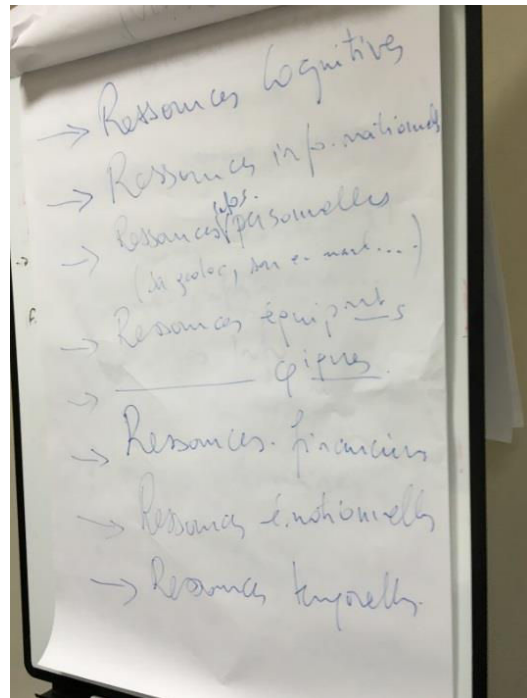 → Ressources Cognitives
→ Ressources informationnels
→ Ressources infos. personnelles
( géoloc, son e-mail...)
→ Ressources équipmts
→ ———— φiques
→ Ressources financières
→ Ressources émotionnelles
→ Ressources temporelles.